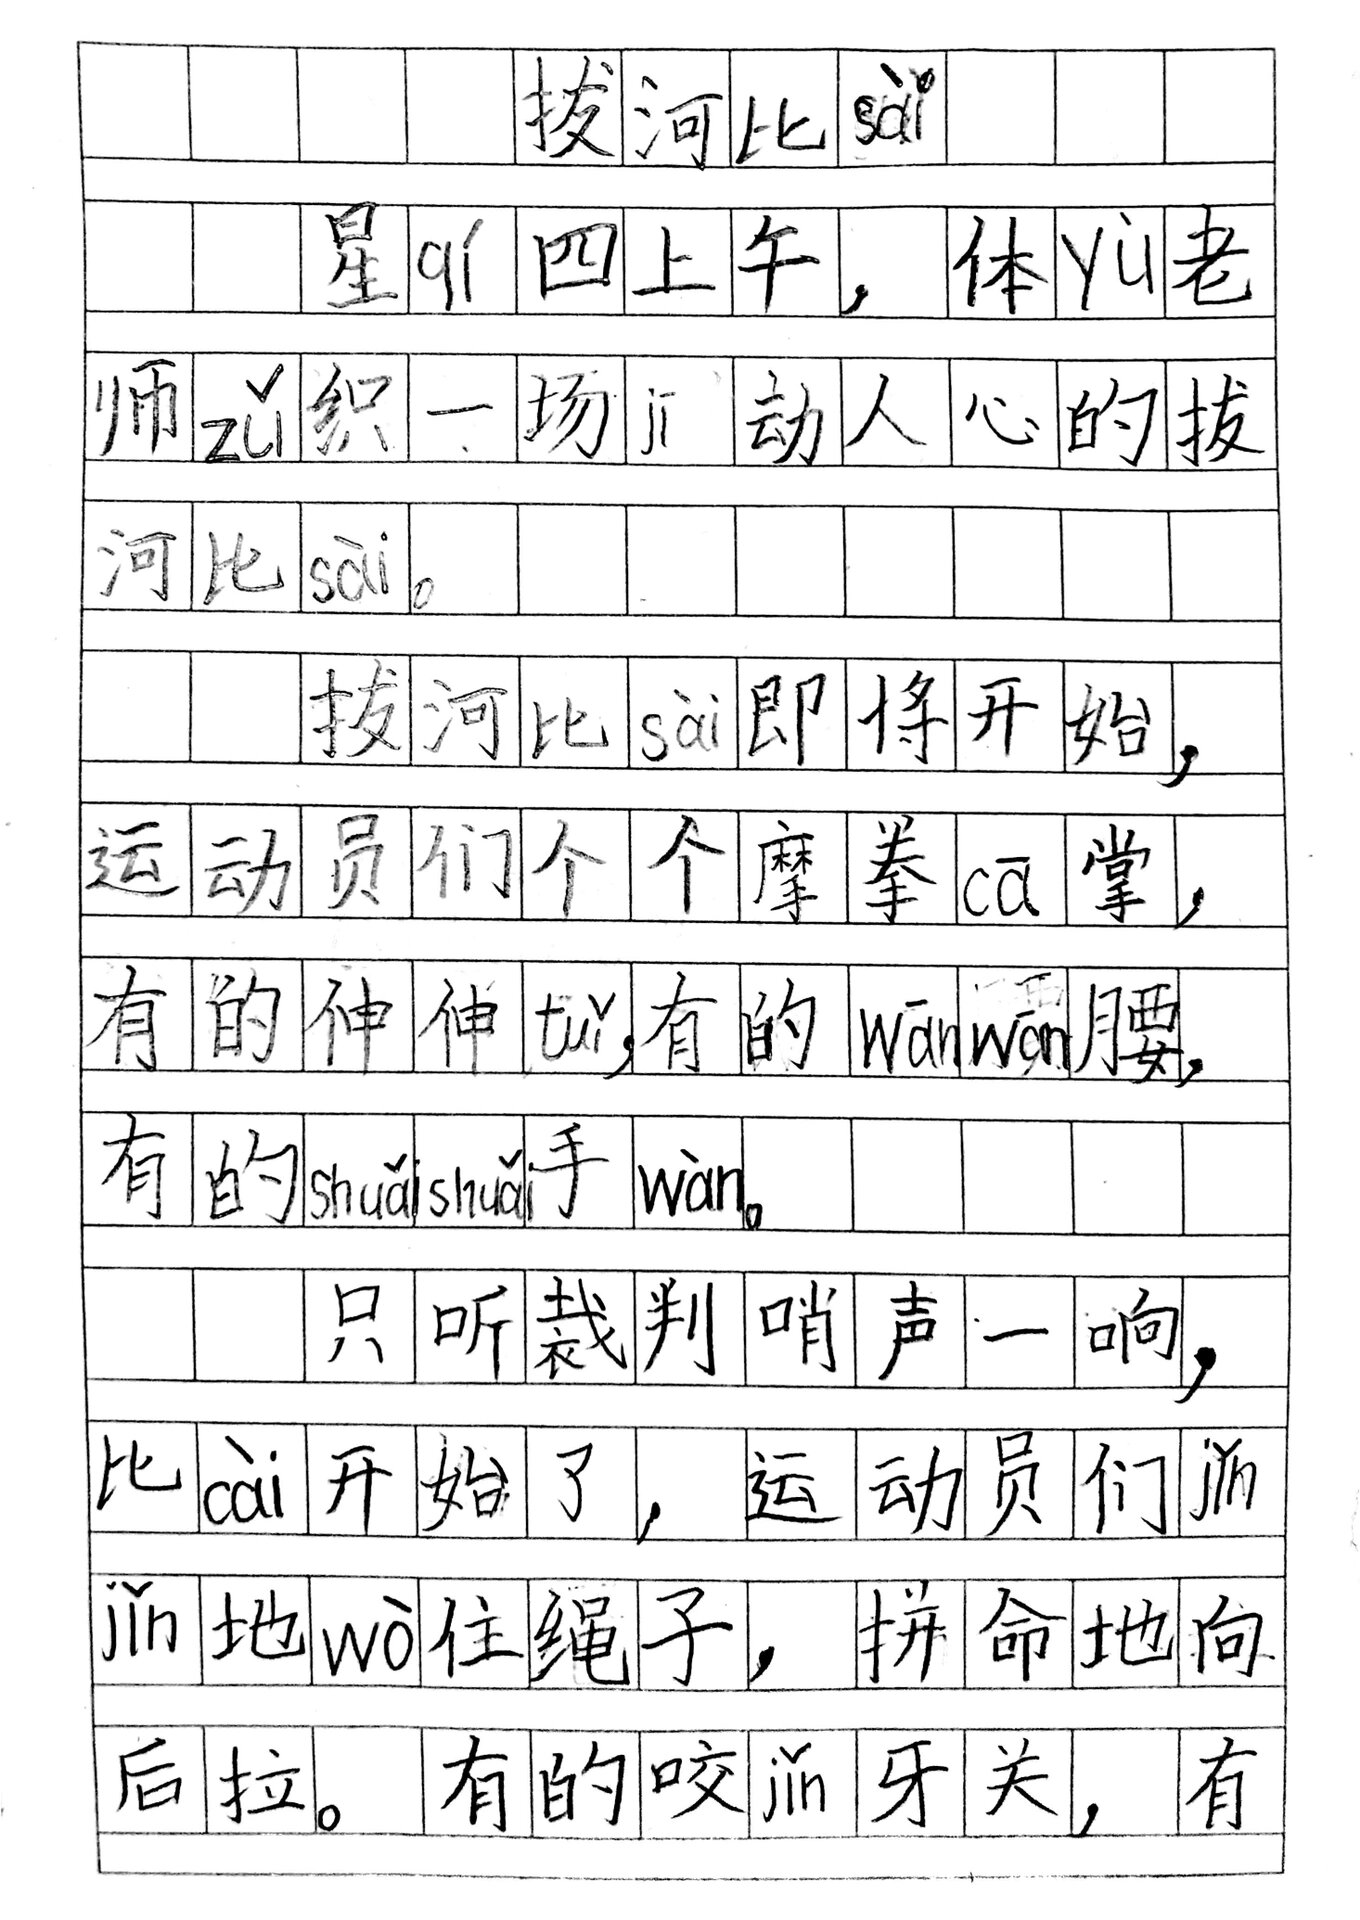 拔河比sài
星qí四上午，体yù老
师zǔi织一场jī动人心的拔
河比sài。
拔河比sài即将开始，
运动员们个个摩拳cā掌，
有的伸伸tuǐ，有的wānwān腰，
有的shuǎishuǎi手wàn。
只听裁判哨声一响，
比cài开始了，运动员们jǐn
jǐn地wò住绳子，拼命地向
后拉。有的咬jǐn牙关，有